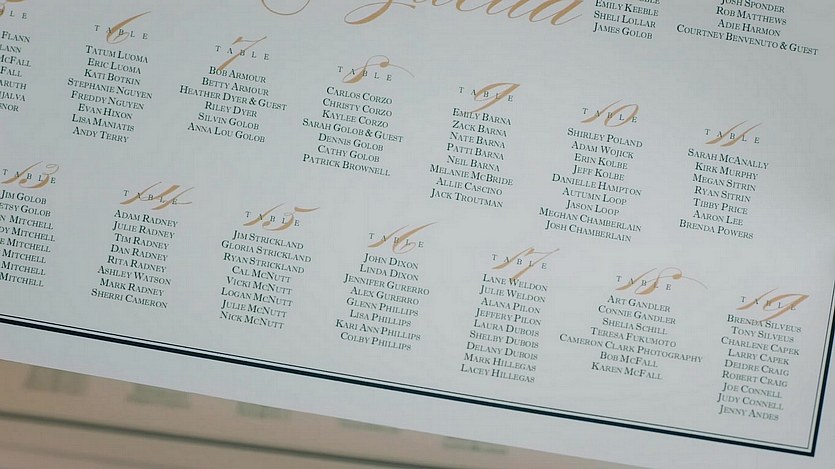 EMILY KEEBLE
SHELI LOLLAR
JAMES GOLOB
JOSH SPONDER
ROB MATTHEWS
ADIE HARMON
COURTNEY BENVENUTO & GUEST
FLANN
TABLE 6
TATUM LUOMA
ERIC LUOMA
KATI BOTKIN
STEPHANIE NGUYEN
FREDDY NGUYEN
EVAN HIXON
LISA MANIATIS
ANDY TERRY
TABLE 7
BOB ARMOUR
BETTY ARMOUR
HEATHER DYER & GUEST
RILEY DYER
SILVIN GOLOB
ANNA LOU GOLOB
TABLE 8
CARLOS CORZO
CHRISTY CORZO
KAYLEE CORZO
SARAH GOLOB & GUEST
DENNIS GOLOB
CATHY GOLOB
PATRICK BROWNELL
TABLE 9
EMILY BARNA
ZACK BARNA
NATE BARNA
PATTI BARNA
NEIL BARNA
MELANIE MCBRIDE
ALLIE CASCINO
JACK TROUTMAN
TABLE 10
SHIRLEY POLAND
ADAM WOJICK
ERIN KOLBE
JEFF KOLBE
DANIELLE HAMPTON
AUTUMN LOOP
JASON LOOP
MEGHAN CHAMBERLAIN
JOSH CHAMBERLAIN
TABLE 11
SARAH MCANALLY
KIRK MURPHY
MEGAN SITRIN
RYAN SITRIN
TIBBY PRICE
AARON LEE
BRENDA POWERS
TABLE 13
JIM GOLOB
ETSY GOLOB
MITCHELL
MITCHELL
MITCHELL
MITCHELL
MITCHELL
MITCHELL
TABLE 14
ADAM RADNEY
JULIE RADNEY
TIM RADNEY
DAN RADNEY
RITA RADNEY
ASHLEY WATSON
MARK RADNEY
SHERRI CAMERON
TABLE 15
JIM STRICKLAND
GLORIA STRICKLAND
RYAN STRICKLAND
CAL MCNUTT
VICKI MCNUTT
LOGAN MCNUTT
JULIE MCNUTT
NICK MCNUTT
TABLE 16
JOHN DIXON
LINDA DIXON
JENNIFER GURERRO
ALEX GURERRO
GLENN PHILLIPS
LISA PHILLIPS
KARI ANN PHILLIPS
COLBY PHILLIPS
TABLE 17
LANE WELDON
JULIE WELDON
ALANA PILON
JEFFERY PILON
LAURA DUBOIS
SHELBY DUBOIS
DELANY DUBOIS
MARK HILLEGAS
LACEY HILLEGAS
TABLE 18
ART GANDLER
CONNIE GANDLER
SHELIA SCHILL
TERESA FUKUMOTO
CAMERON CLARK PHOTOGRAPHY
BOB MCFALL
KAREN MCFALL
TABLE 19
BRENDA SILVEUS
TONY SILVEUS
CHARLENE CAPEK
LARRY CAPEK
DEIDRE CRAIG
ROBERT CRAIG
JOE CONNELL
JUDY CONNELL
JENNY ANDES